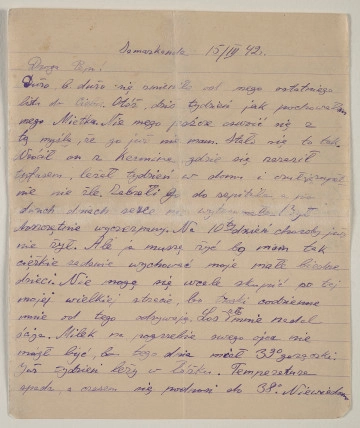 Samarkanda 15/IV 42 r.
Droga Pepi!
Dużo, b. dużo się zmieniło od mego ostatniego
listu do Ciebie. Otóż, dziś tydzień jak pochowałam
mego Mietka. Nie mogę jeszcze oswoić się z
tą myślą, że go już nie mam. Stało się to tak
Wrócił on z Kermine gdzie się zaraził
tyfusem, leżał tydzień w domu i
nie źle. Zabrali go do szpitala i po
dwóch dniach serce nie wytrzymało. Był
doszczętnie wyczerpany. Na 10ty dzień choroby już
nie żył. Ale ja muszę żyć bo mam tak
ciężkie zadanie wychować moje małe biedne
dzieci. Nie mogę się wcale skupić po tej
mojej wielkiej stracie, bo troski codzienne
mnie od tego odrywają. Los mnie nadal
ściga. Milek na pogrzebie swego ojca nie
mógł być, bo tego dnia miał 39° gorączki.
Już tydzień leży w łóżku. Temperatura
spada, a czasem się podnosi do 38°. Niewiadomo